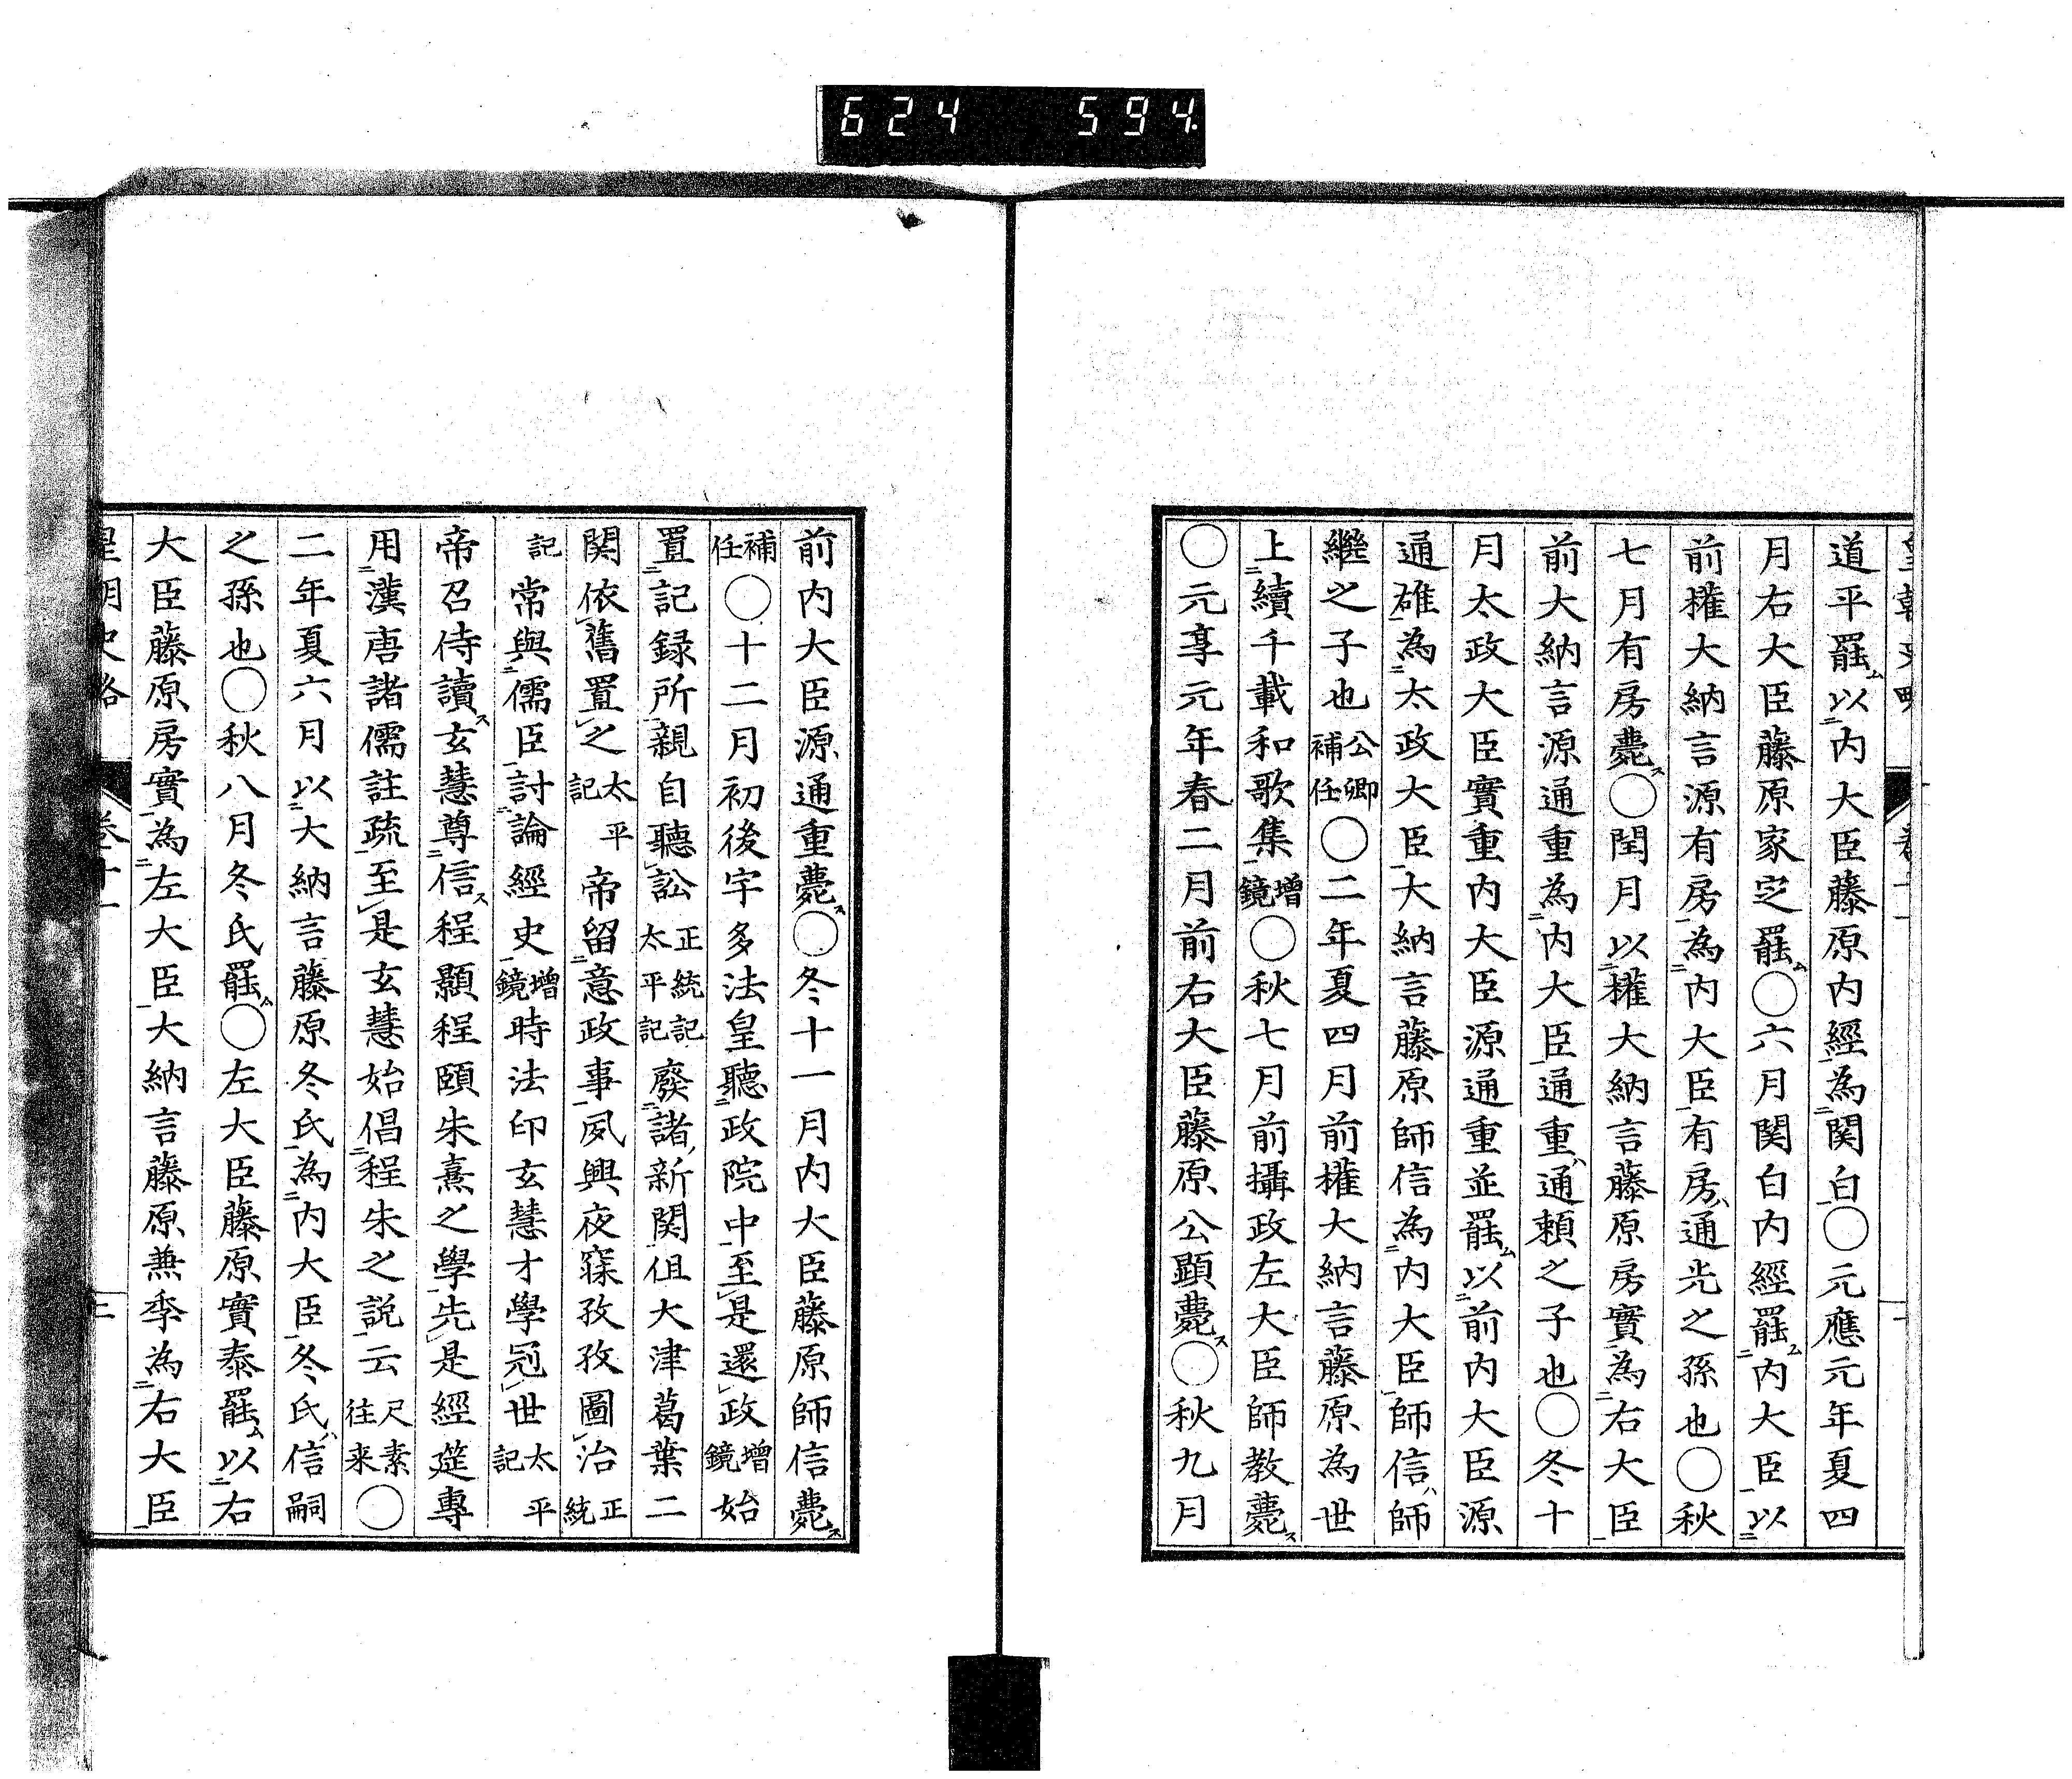 624 594
道平罷以内大臣藤原内經為関白〇元應元年夏四
月右大臣藤原家定罷〇六月関白内經罷内大臣以
前權大納言源有房為内大臣有房通光之孫也〇秋
七月有房薨〇閏月以權大納言藤原房實為右大臣
前大納言源通重為内大臣通重通頼之子也〇冬十
月太政大臣實重内大臣源通重並罷以前内大臣源
通雄為太政大臣大納言藤原師信為内大臣師信師
繼之子也公卿補任〇二年夏四月前權大納言藤原為世
上續千載和歌集增鏡〇秋七月前攝政左大臣師教薨
〇元享元年春二月前右大臣藤原公顕薨〇秋九月
前内大臣源通重薨〇冬十一月内大臣藤原師信薨
補任〇十二月初後宇多法皇聽政院中至是還政增鏡始
置記録所親自聽訟正統記太平記廢諸新関但大津葛葉二
関依舊置之太平記帝留意政事夙興夜寐孜孜圖治正統
記常與儒臣討論經史增鏡時法印玄慧才學冠世太平記
帝召侍讀玄慧尊信程顥程頤朱熹之學先是經筵專
用漢唐諸儒註疏至是玄慧始倡程朱之説云尺素往来〇
二年夏六月以大納言藤原冬氏為内大臣冬氏信嗣
之孫也〇秋八月冬氏罷〇左大臣藤原實泰罷以右
大臣藤原房實為左大臣大納言藤原兼季為右大臣